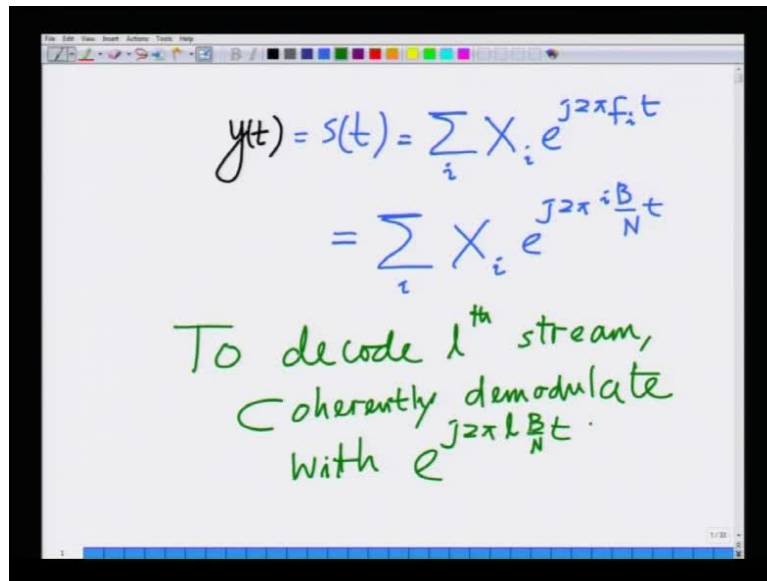 File Edit View Insert Actions Tools Help
B I
y(t) = s(t) = ∑_i X_i e^{j2πf_i t}
= ∑_i X_i e^{j2π i B/N t}
To decode l^th stream,
Coherently demodulate
with e^{j2π l B/N t}.
1/33
1